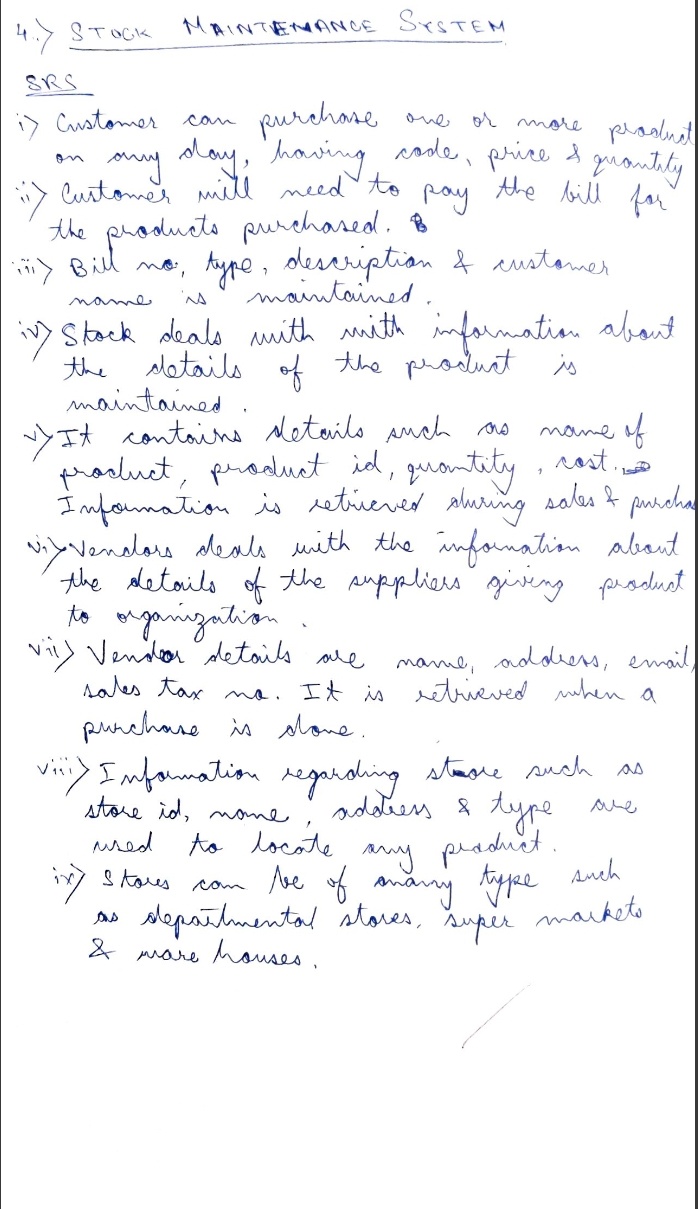 4.) STOCK MAINTENANCE SYSTEM
SRS
i) Customer can purchase one or more product
on any day, having code, price & quantity
ii) Customer will need to pay the bill for
the products purchased.
iii) Bill no, type, description & customer
name is maintained.
iv) Stock deals with with information about
the details of the product is
maintained.
v) It contains details such as name of
product, product id, quantity, cost.
Information is retrieved during sales & purchas
vi) Vendors deals with the information about
the details of the suppliers giving product
to organization.
vii) Vendor details are name, address, email,
sales tax no. It is retrieved when a
purchase is done.
viii) Information regarding store such as
store id, name, address & type are
used to locate any product.
ix) Stores can be of many type such
as departmental stores, super markets
& ware houses.